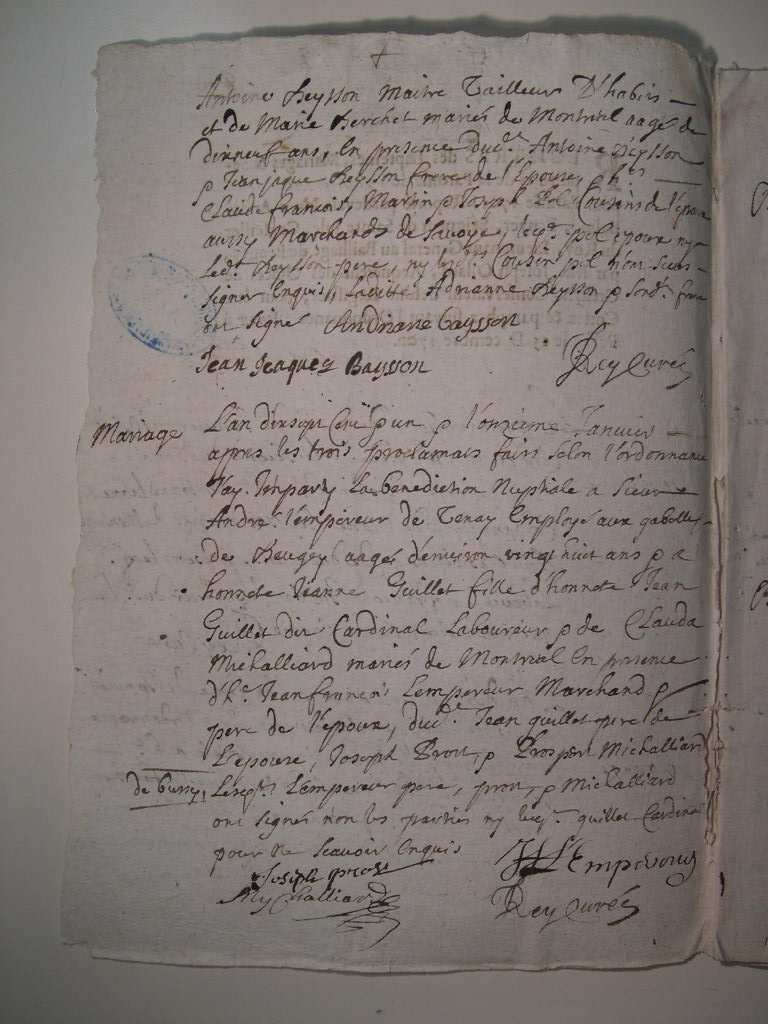 Antoine Reysson Maitre Tailleur D'habis
et de Marie Berchet mariés de Montreal aagée de
dixneuf ans, En presence dud.t Antoine Reysson
Jean jaque Reysson frere de l'Epouse,
Claude francois, Martin & Joseph Pol Cousins de l'epoux
aussy Marchands de Savoye, led.t pol epoux ny
led.t Reysson pere, ny Cousin pol n'ont sceu
signer Enquis, Laditte Adrianne Reysson & sond.t frere
ont signés Andriane Baysson
Jean Jeaques Baysson Rey Curé
Mariage L'an dixsept Cent un & l'onzieme Janvier
apres les trois proclamats faits selon l'ordonnance
J'ay Imparty La benediction Nuptiale a Sieur
André l'empereur de Tenay Employé aux gabelles
de Beugey aagé d'environ vingt huit ans & a
honnete Jeanne Guillet fille d'honnete Jean
Guillet dit Cardinal Laboureur & de Clauda
Michalliard mariés de Montreal En presence
d'h.e Jean francois Lempereur Marchand &
pere de l'epoux, dud.t Jean guillet pere de
L'epouse, Joseph Prost, & Prosper Michalliard
de bussy, Lesq.ls Lempereur pere, prost, & Michalliard
ont signés non les parties ny led.t guillet Cardinal
pour ne scavoir Enquis
Joseph prost L'Empereur
Mychalliard Rey Curé